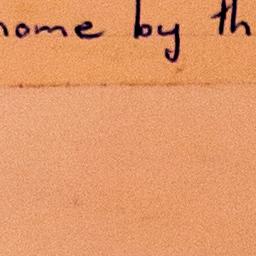 home by th